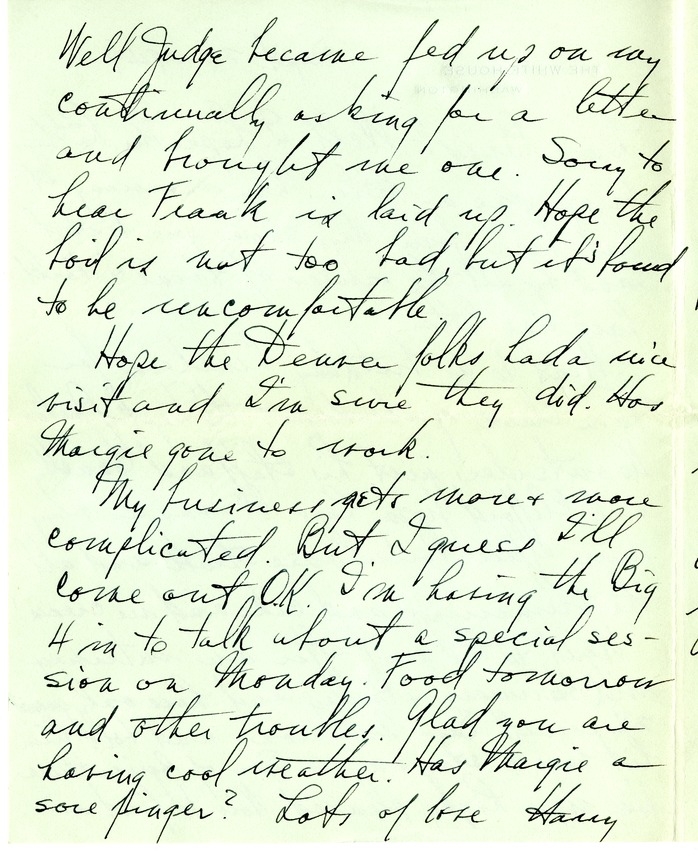 Well Judge became fed up on my
continually asking for a letter
and brought me one. Sorry to
hear Frank is laid up. Hope the
boil is not too bad, but it's bound
to be uncomfortable.
Hope the Denver folks had a nice
visit and I'm sure they did. Has
Margie gone to work.
My business gets more & more
complicated. But I guess I'll
come out O.K. I'm having the Big
4 in to talk about a special ses-
sion on Monday. Food tomorrow
and other troubles. Glad you are
having cool weather. Has Margie a
sore finger? Lots of love Harry
THE WHITE HOUSE
WASHINGTON